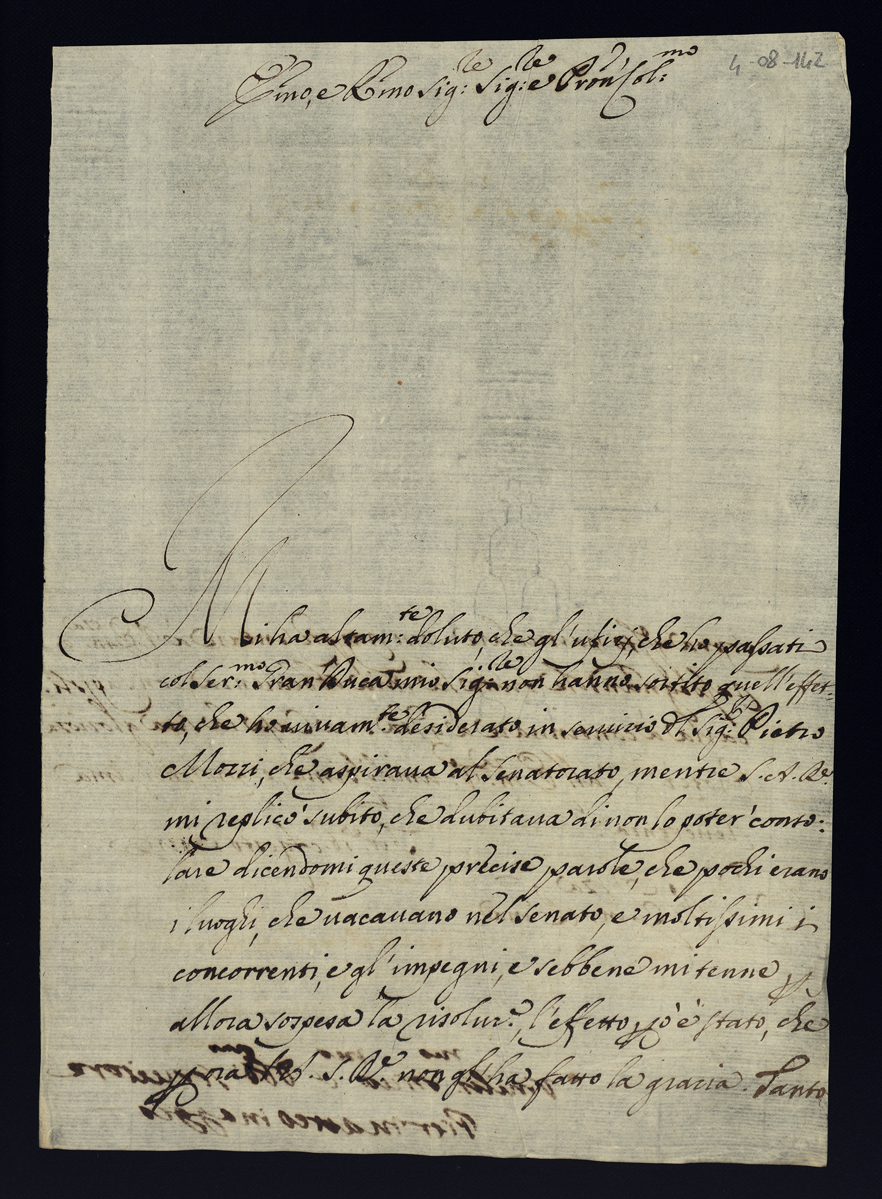 4-08-142
Ill.mo, e R.mo Sig:re Sig:re e Pron' Col:mo
Mi ha altam:te doluto, che gl'ufizj, che ho passati
col Ser:mo Gran Duca mio Sig:re non hanno sortito quell'effet-
to, che ho vivam:te desiderato in servizio del Sig: Pietro
Mozzi, che aspirava al Senatorato, mentre S. A. Re.
mi replicò subito, che dubitava di non lo poter' conso:
lare dicendomi queste precise parole, che pochi erano
i luoghi, che vacavano nel Senato, e moltissimi i
concorrenti, e gl'impegni, e sebbene mi tenne p
allora sospesa la risoluz.e, l'effetto però è stato, che
p ora S. A. Re. non gl'ha fatto la grazia. Tanto